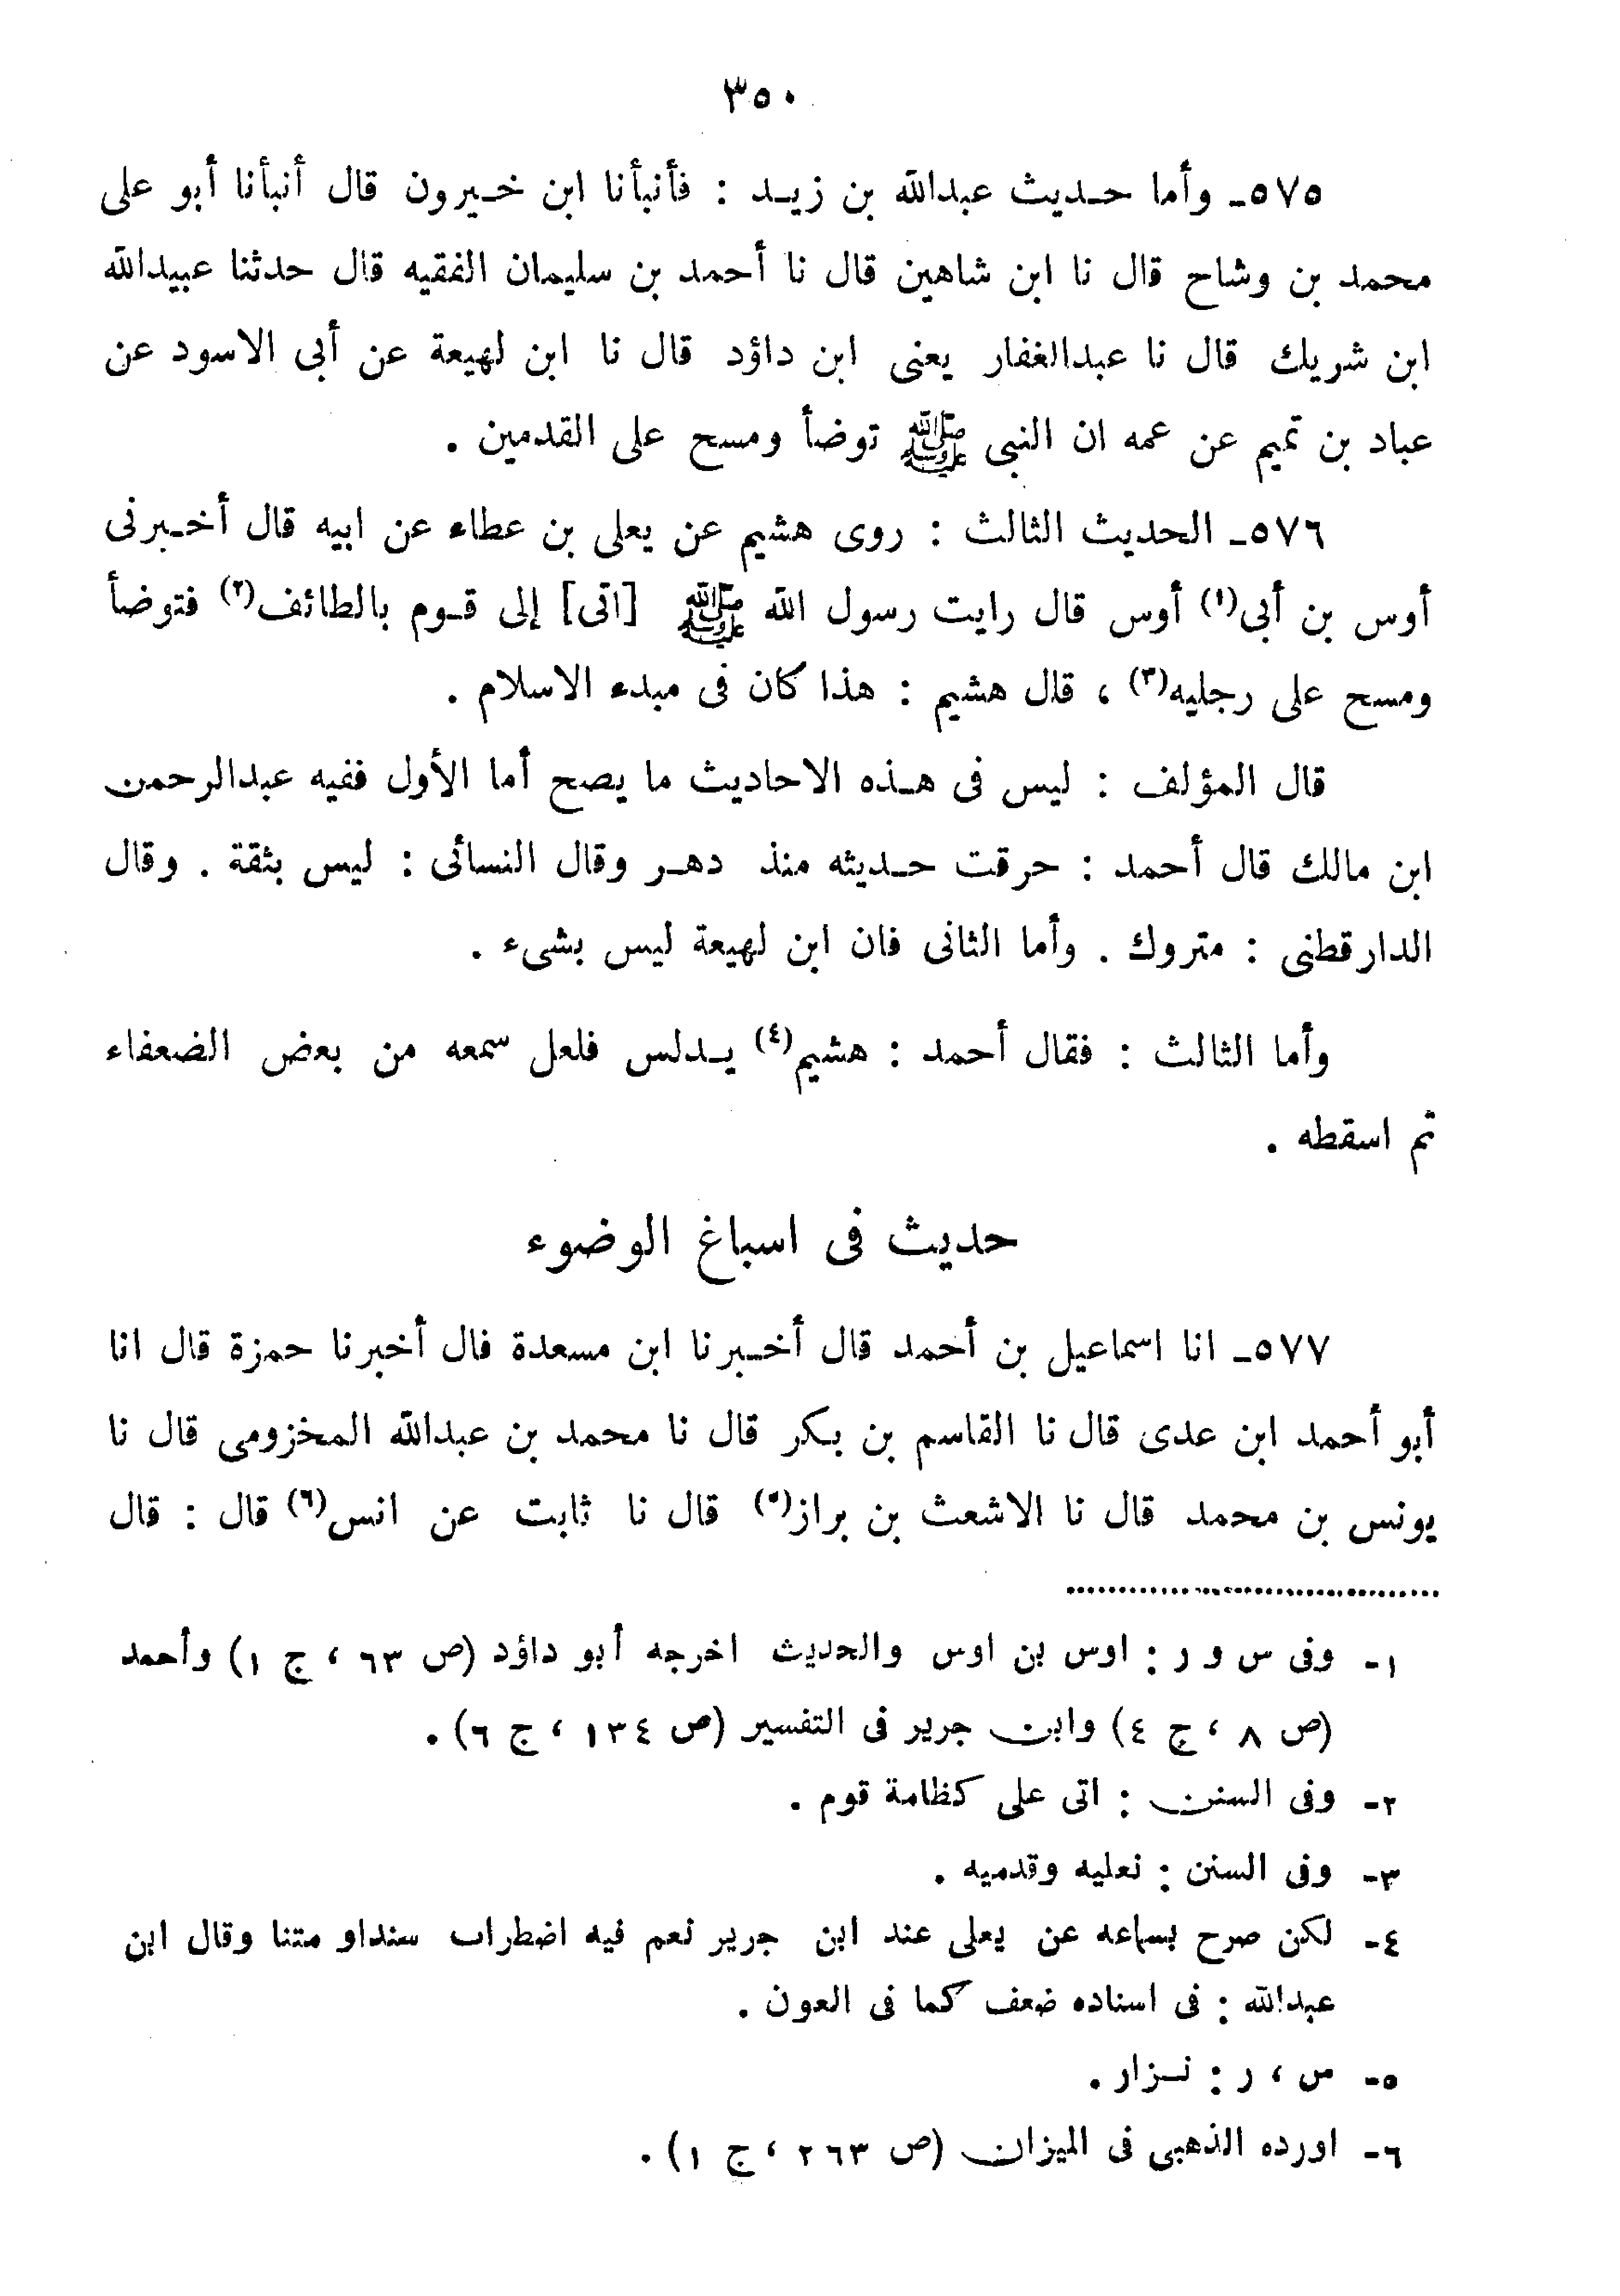 ٣٥٠
٥٧٥ـ وأما حـديث عبدالله بن زيـد : فأنبأنا ابن خـيرون قال أنبأنا أبو على
محمد بن وشاح قال نا ابن شاهين قال نا أحمد بن سليمان الفقيه قال حدثنا عبيدالله
ابن شريك قال نا عبدالغفار يعنى ابن داؤد قال نا ابن لهيعة عن أبى الاسود عن
عباد بن تميم عن عمه ان النبى ﷺ توضأ ومسح على القدمين .
٥٧٦ـ الحديث الثالث : روى هشيم عن يعلى بن عطاء عن ابيه قال أخـبرنى
أوس بن أبى(١) أوس قال رايت رسول الله ﷺ [اتى] إلى قـوم بالطائف(٢) فتوضأ
ومسح على رجليه(٣) ، قال هشيم : هذا كان فى مبدء الاسلام .
قال المؤلف : ليس فى هـذه الاحاديث ما يصح أما الأول ففيه عبدالرحمن
ابن مالك قال أحمد : حرقت حـديثه منذ دهـر وقال النسائى : ليس بثقة . وقال
الدارقطنى : متروك . وأما الثانى فان ابن لهيعة ليس بشىء .
وأما الثالث : فقال أحمد : هشيم(٤) يـدلس فلعل سمعه من بعض الضعفاء
ثم اسقطه .
حديث فى اسباغ الوضوء
٥٧٧ـ انا اسماعيل بن أحمد قال أخـبرنا ابن مسعدة فال أخبرنا حمزة قال انا
أبو أحمد ابن عدى قال نا القاسم بن بكر قال نا محمد بن عبدالله المخزومى قال نا
يونس بن محمد قال نا الاشعث بن براز(٥) قال نا ثابت عن انس(٦) قال : قال
١ـ وفى س و ر : اوس بن اوس والحديث اخرجه أبو داؤد (ص ٦٣ ، ج ١) وأحمد
(ص ٨ ، ج ٤) وابن جرير فى التفسير (ص ١٣٤ ، ج ٦) .
٢ـ وفى السنن : اتى على كظامة قوم .
٣ـ وفى السنن : نعليه وقدميه .
٤ـ لكن صرح بسماعه عن يعلى عند ابن جرير نعم فيه اضطراب سنداو متنا وقال ابن
عبدالله : فى اسناده ضعف كما فى العون .
٥ـ س ، ر : نـزار .
٦ـ اورده الذهبى فى الميزان (ص ٢٦٣ ، ج ١) .